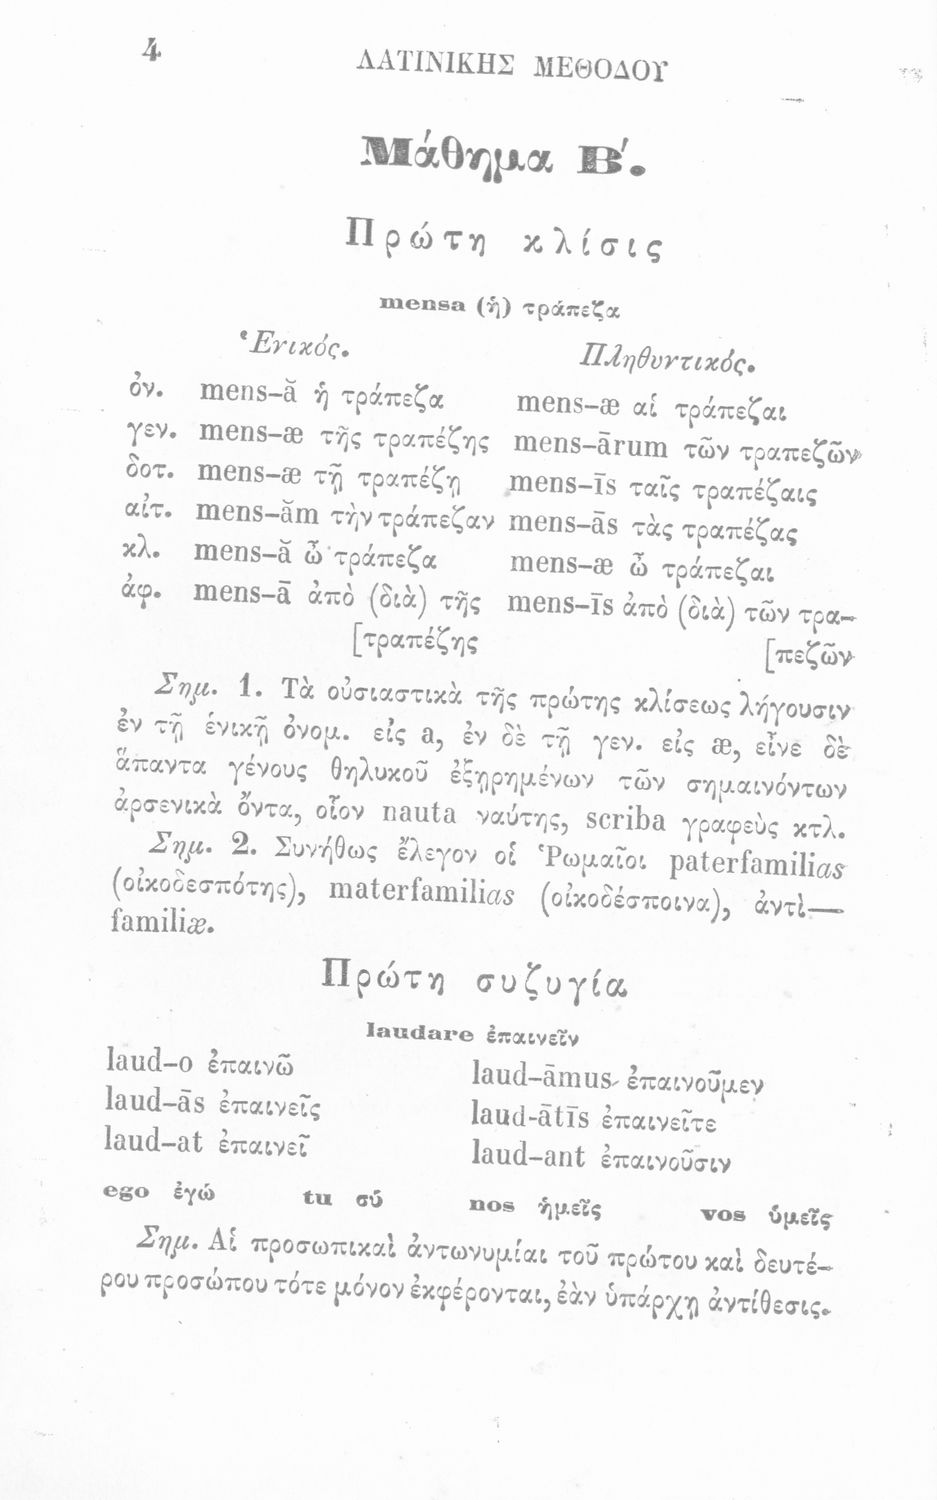 4 ΛΑΤΙΝΙΚΗΣ ΜΕΘΟΔΟΥ
Μάθημα Β′.
Πρώτη κλίσις
mensa (ἡ) τράπεζα
Ἑνικός. Πληθυντικός.
ὀν. mens-ă ἡ τράπεζα mens-æ αἱ τράπεζαι
γεν. mens-æ τῆς τραπέζης mens-ārum τῶν τραπεζῶν
δοτ. mens-æ τῇ τραπέζῃ mens-īs ταῖς τραπέζαις
αἰτ. mens-ăm τὴν τράπεζαν mens-ās τὰς τραπέζας
κλ. mens-ă ὦ τράπεζα mens-æ ὦ τράπεζαι
ἀφ. mens-ā ἀπὸ (διὰ) τῆς mens-īs ἀπὸ (διὰ) τῶν τρα-
[τραπέζης [πεζῶν
Σημ. 1. Τὰ οὐσιαστικὰ τῆς πρώτης κλίσεως λήγουσιν
ἐν τῇ ἑνικῇ ὀνομ. εἰς a, ἐν δὲ τῇ γεν. εἰς æ, εἶνε δὲ
ἅπαντα γένους θηλυκοῦ ἐξῃρημένων τῶν σημαινόντων
ἀρσενικὰ ὄντα, οἷον nauta ναύτης, scriba γραφεὺς κτλ.
Σημ. 2. Συνήθως ἔλεγον οἱ Ῥωμαῖοι paterfamilias
(οἰκοδεσπότης), materfamilias (οἰκοδέσποινα), ἀντὶ—
familiæ.
Πρώτη συζυγία
laudare ἐπαινεῖν
laud-o ἐπαινῶ laud-āmus ἐπαινοῦμεν
laud-ās ἐπαινεῖς laud-ātīs ἐπαινεῖτε
laud-at ἐπαινεῖ laud-ant ἐπαινοῦσιν
ego ἐγώ tu σύ nos ἡμεῖς vos ὑμεῖς
Σημ. Αἱ προσωπικαὶ ἀντωνυμίαι τοῦ πρώτου καὶ δευτέ-
ρου προσώπου τότε μόνον ἐκφέρονται, ἐὰν ὑπάρχῃ ἀντίθεσις.